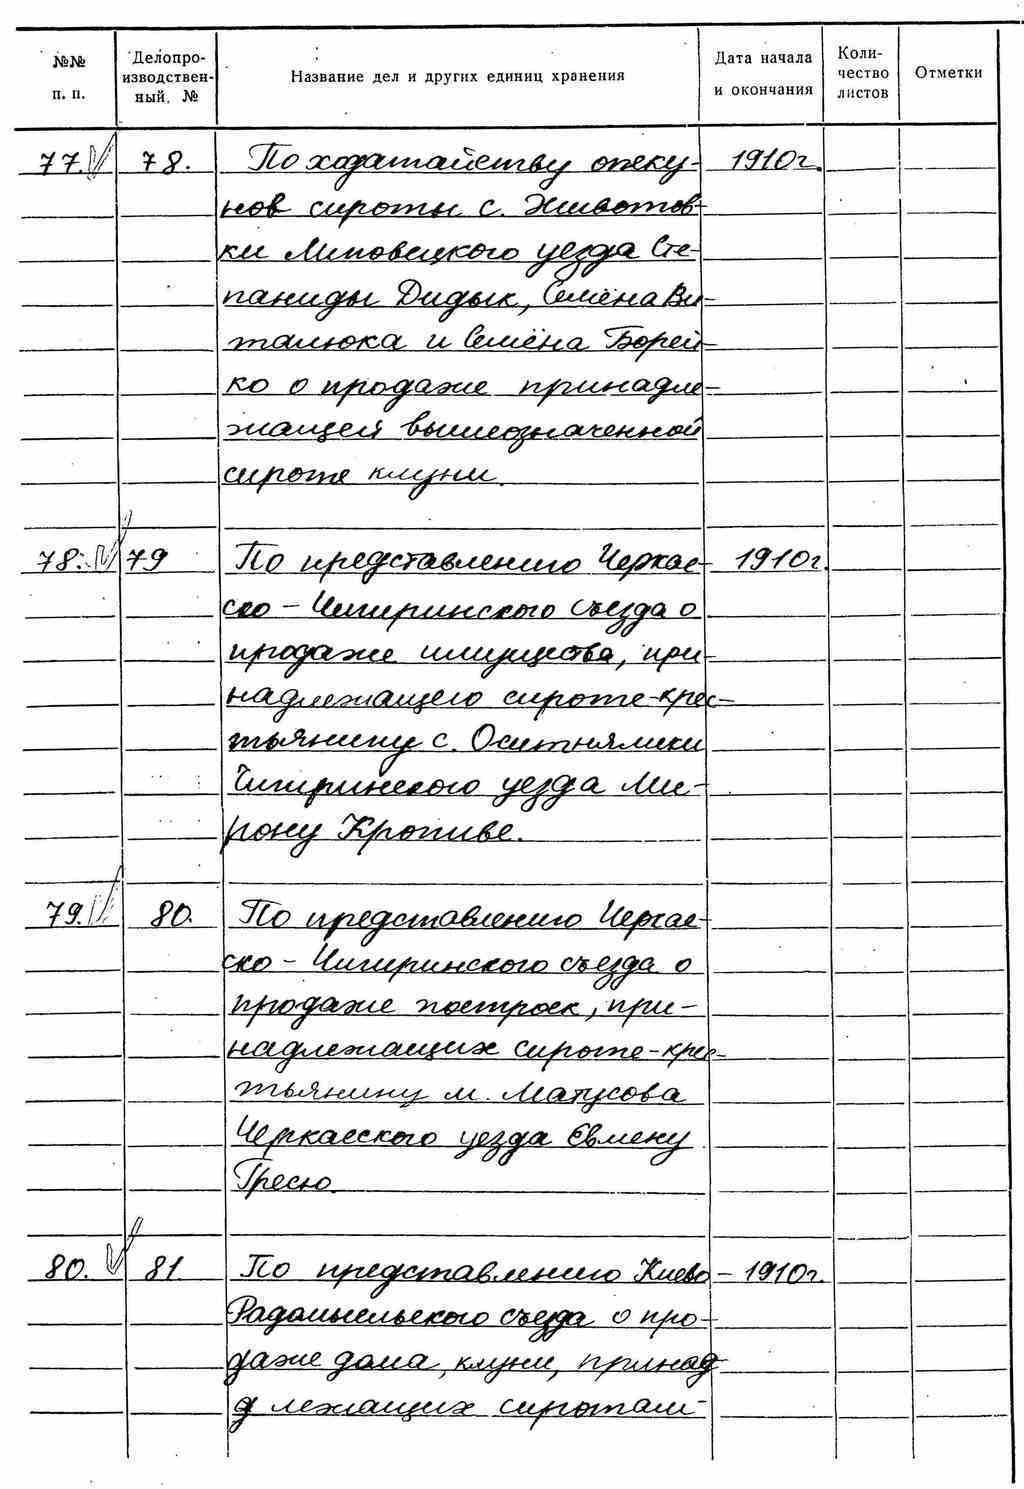 №№ п. п. Делопро-изводствен-ный, № Название дел и других единиц хранения Дата начала и окончания Коли-чество листов Отметки
77. 78. По ходатайству опеку- 1910г.
нов сироты с. Животов-
ки Липовецкого уезда Сте-
паниды Дидык, Семёна Ви-
талюка и Семёна Борей-
ко о продаже принадле-
жащей вышеозначенной
сироте клуни.
78. 79 По представлению Черкас- 1910г.
ско - Чигиринского съезда о
продаже имущества, при-
надлежащего сироте-крес-
тьянину с. Оситняжки
Чигиринского уезда Ми-
рону Кропиве.
79. 80. По представлению Черкас-
ско - Чигиринского съезда о
продаже построек, при-
надлежащих сироте-крес-
тьянину м. Матусова
Черкасского уезда Евмену
Гресю.
80. 81 По представлению Киево - 1910г.
Радомысльского съезда о про-
даже дома, клуни, принад
длежащих сиротам-